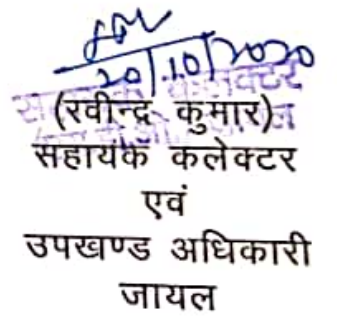 20/10/2020
(रवीन्द्र कुमार)
सहायक कलेक्टर
एवं
उपखण्ड अधिकारी
जायल